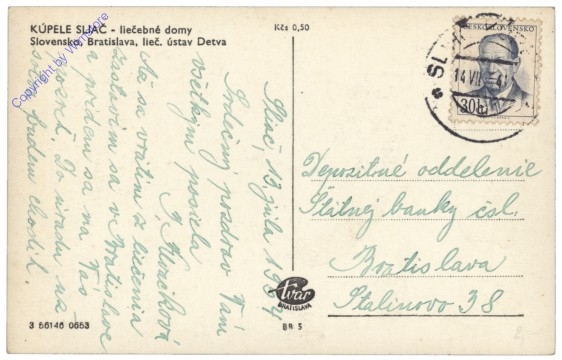 KÚPELE SLIAČ - liečebné domy
Slovensko, Bratislava, lieč. ústav Detva
Kčs 0,50
ČESKOSLOVENSKO
30h
SL
14 VII
Sliač, 13 júla 1954
Srdečný pozdrav Vám
všetkým posiela
Ak sa vrátim z liečenia
zastavím sa v Bratislave
a prídem sa na Vás
Do úradu
budem chodiť.
Depozitné oddelenie
Štátnej banky čsl.
Bratislava
Stalinovo 38
Tvar
BRATISLAVA
3 56146 0653
BR 5
Copyright by Vianostore